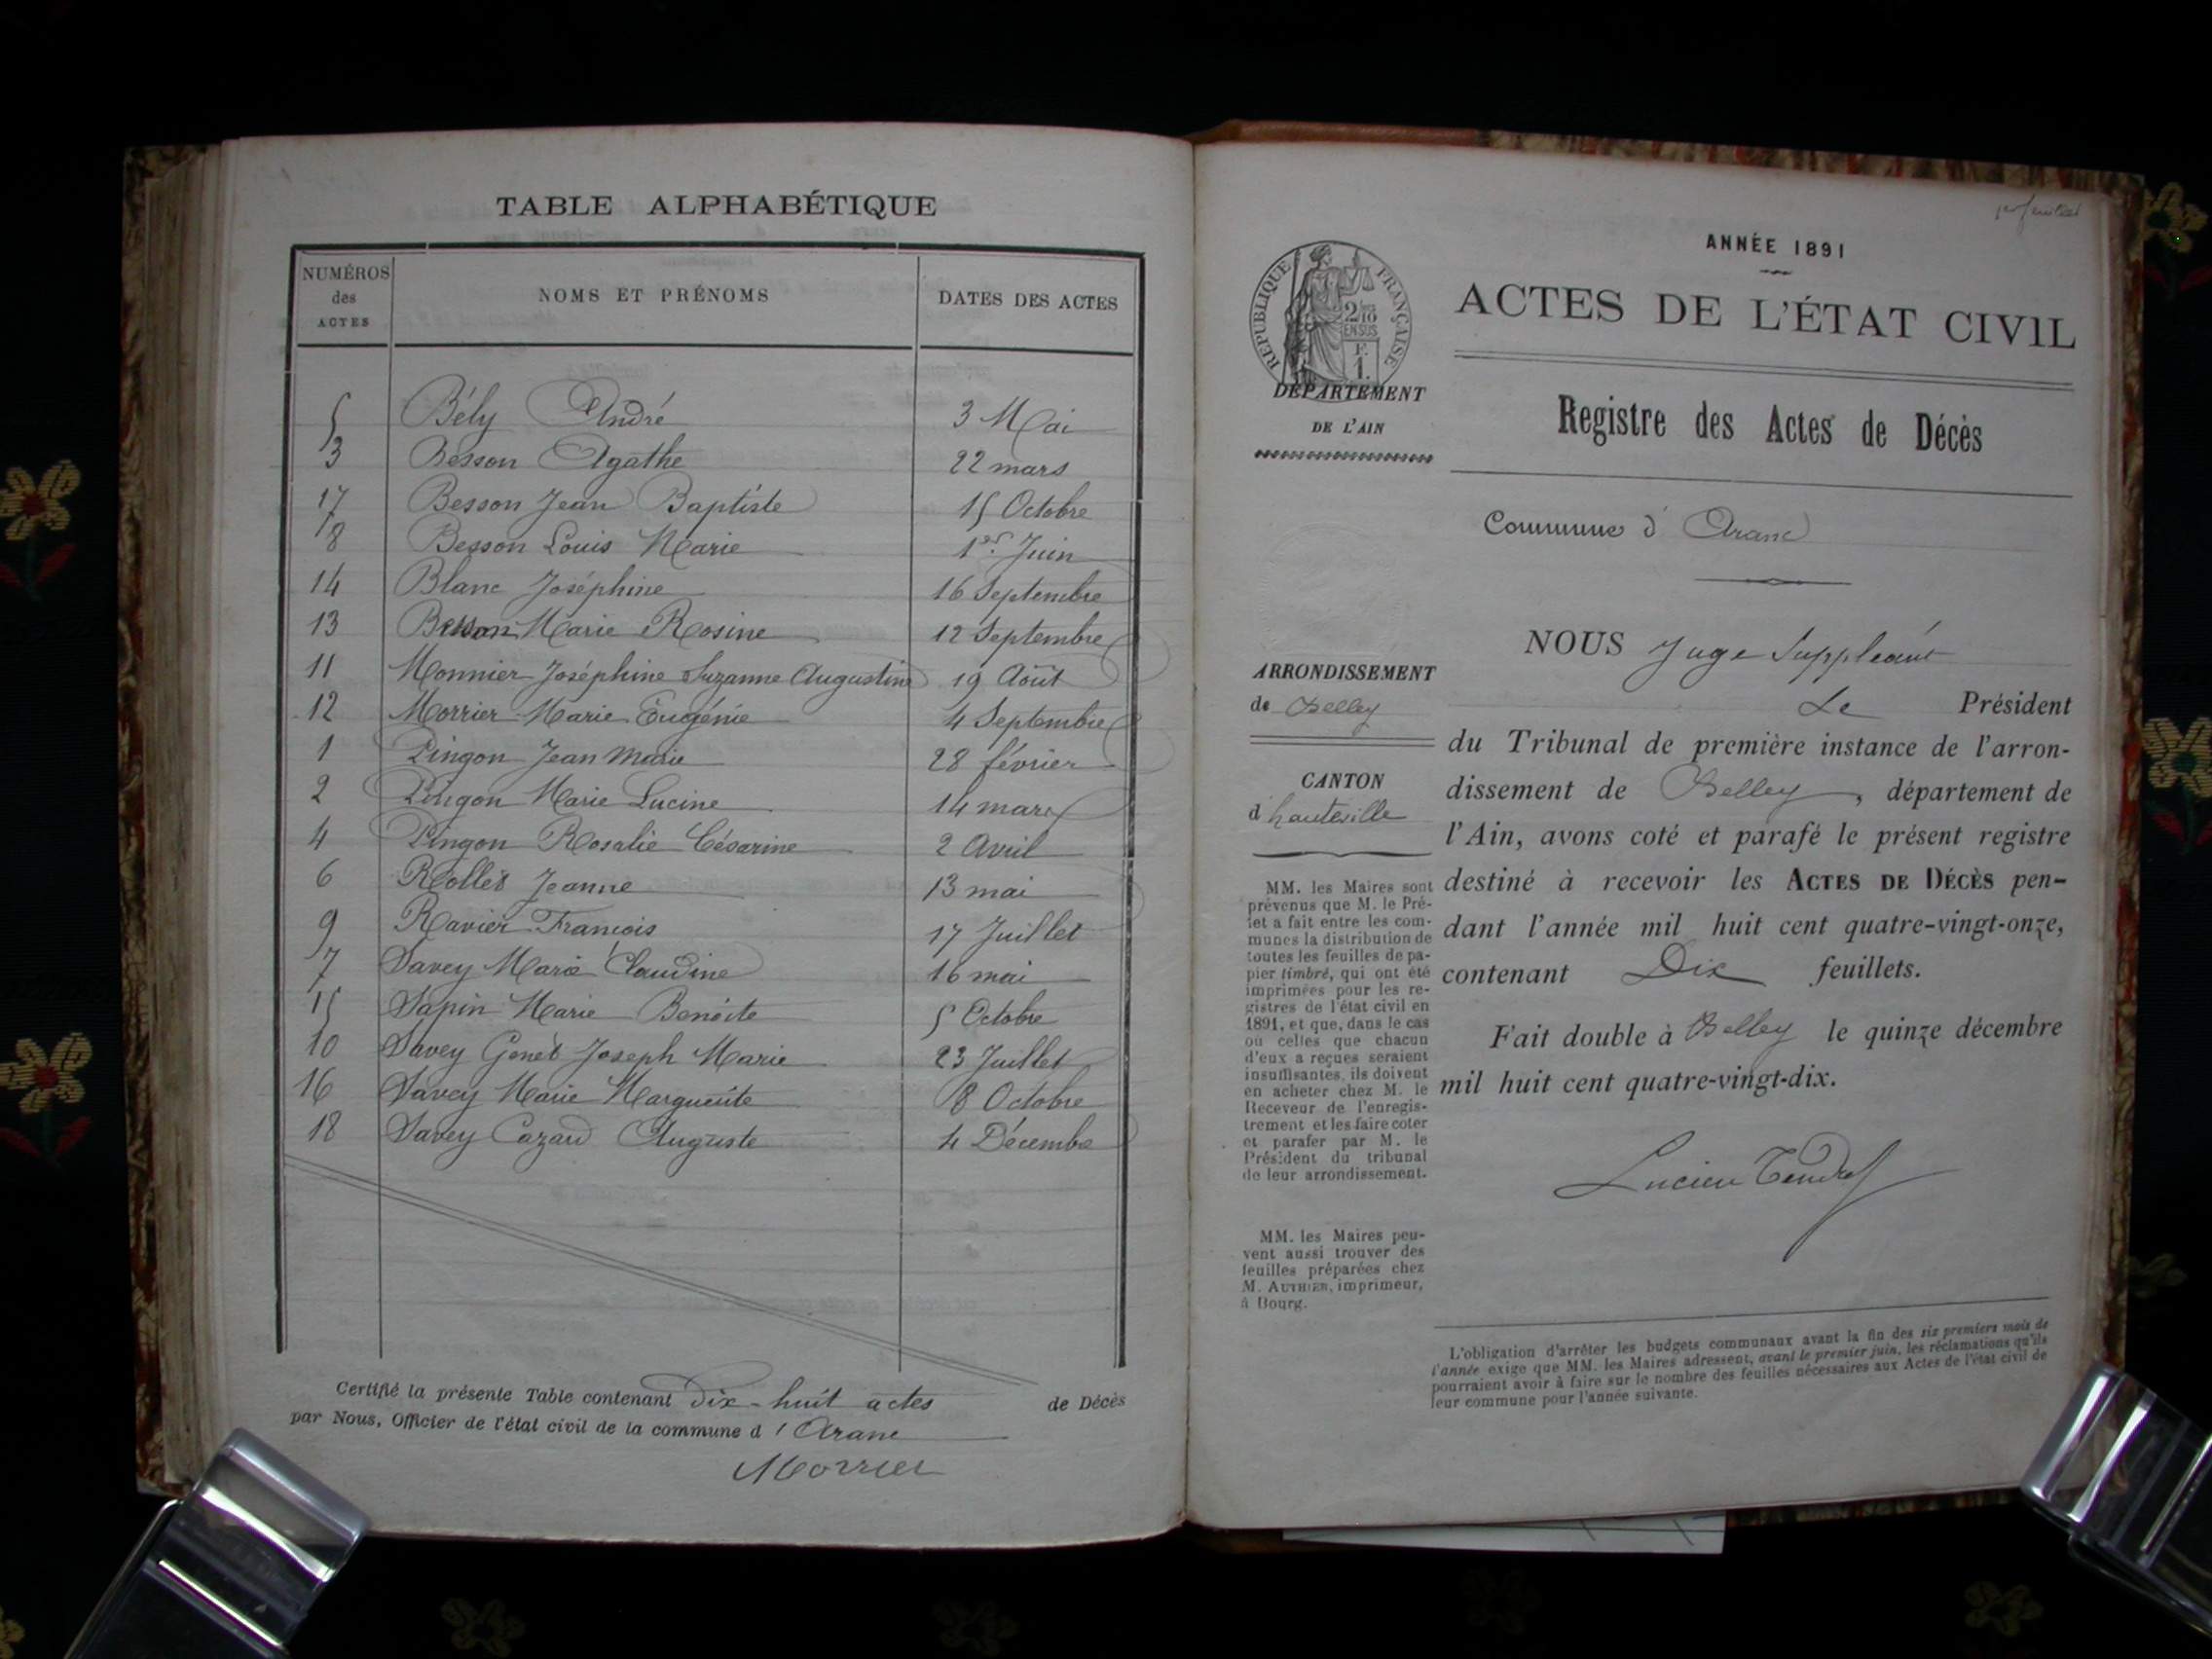 TABLE ALPHABÉTIQUE
NUMÉROS des ACTES NOMS ET PRÉNOMS DATES DES ACTES
5 Bély André 3 Mai
3 Besson Agathe 22 mars
17 Besson Jean Baptiste 15 Octobre
8 Besson Louis Marie 1er Juin
14 Blanc Joséphine 16 Septembre
13 Besson Marie Rosine 12 Septembre
11 Monnier Joséphine Suzanne Augustine 19 Août
12 Morrier Marie Eugénie 4 Septembre
1 Pingon Jean Marie 28 février
2 Pingon Marie Lucine 14 mars
4 Pingon Rosalie Césarine 2 Avril
6 Rollet Jeanne 13 mai
9 Ravier François 17 Juillet
7 Savey Marie Claudine 16 mai
15 Sapin Marie Benoite 5 Octobre
10 Savey Genet Joseph Marie 23 Juillet
16 Savey Marie Marguerite 8 Octobre
18 Savey Cazard Auguste 4 Décembre
Certifié la présente Table contenant dix-huit actes de Décès
par Nous, Officier de l'état civil de la commune d'Aranc
Morrier
1er feuillet
ANNÉE 1891
ACTES DE L'ÉTAT CIVIL
RÉPUBLIQUE FRANÇAISE
2/10
EN SUS
F.
1.
DÉPARTEMENT
DE L'AIN
Registre des Actes de Décès
Commune d'Aranc
ARRONDISSEMENT
de Belley
CANTON
d'hauteville
NOUS Juge Suppléant
Le Président
du Tribunal de première instance de l'arron-
dissement de Belley, département de
l'Ain, avons coté et parafé le présent registre
destiné à recevoir les ACTES DE DÉCÈS pen-
dant l'année mil huit cent quatre-vingt-onze,
contenant Dix feuillets.
Fait double à Belley le quinze décembre
mil huit cent quatre-vingt-dix.
Lucien Tendret
MM. les Maires sont
prévenus que M. le Pré-
fet a fait entre les com-
munes la distribution de
toutes les feuilles de pa-
pier timbré, qui ont été
imprimées pour les re-
gistres de l'état civil en
1891, et que, dans le cas
où celles que chacun
d'eux a reçues seraient
insuffisantes, ils doivent
en acheter chez M. le
Receveur de l'enregis-
trement et les faire coter
et parafer par M. le
Président du tribunal
de leur arrondissement.
MM. les Maires peu-
vent aussi trouver des
feuilles préparées chez
M. AUTHIER, imprimeur,
à Bourg.
L'obligation d'arrêter les budgets communaux avant la fin des six premiers mois de
l'année exige que MM. les Maires adressent, avant le premier juin, les réclamations qu'ils
pourraient avoir à faire sur le nombre des feuilles nécessaires aux Actes de l'état civil de
leur commune pour l'année suivante.